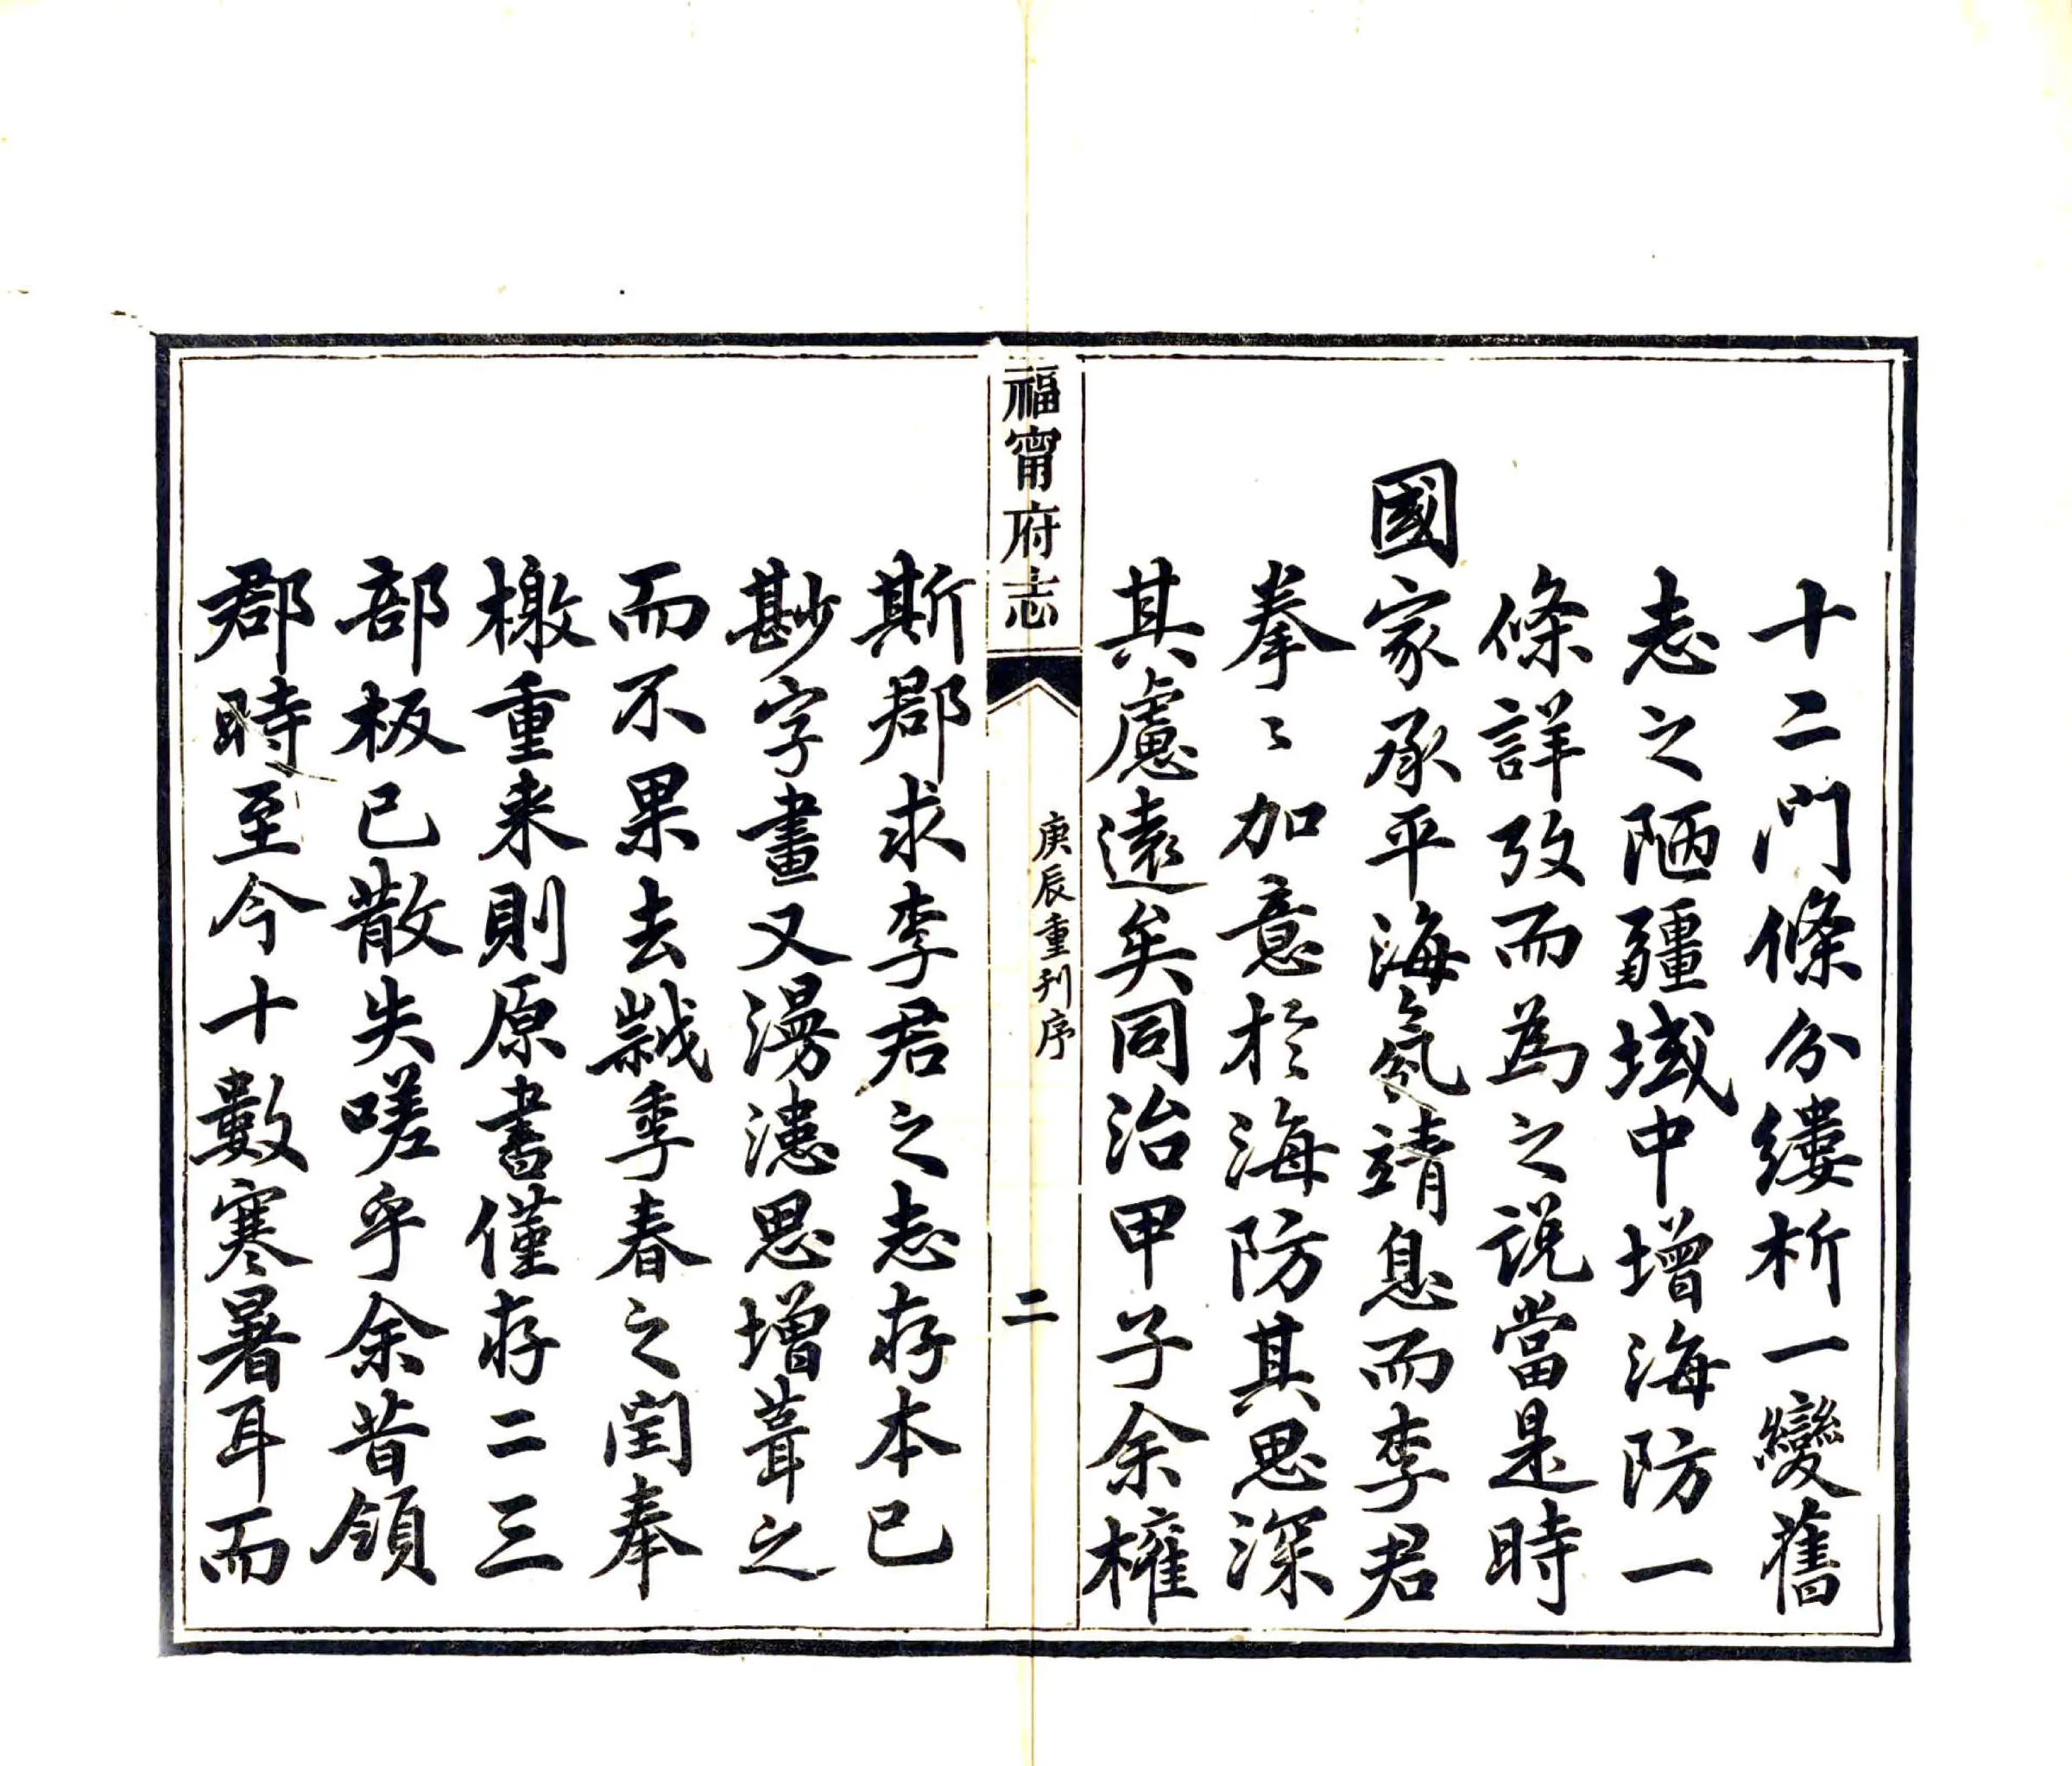 十二門條分縷析一變舊
志之陋疆域中增海防一
條詳攷而為之說當是時
國家承平海氛靖息而李君
拳〻加意於海防其思深
其慮遠矣同治甲子余權
福甯府志
庚辰重刊序
二
斯郡求李君之志存本已
尟字畫又漫漶思增葺之
而不果去歲季春之閏奉
檄重来則原書僅存二三
部板已散失嗟乎余昔領
郡時至今十數寒暑耳而